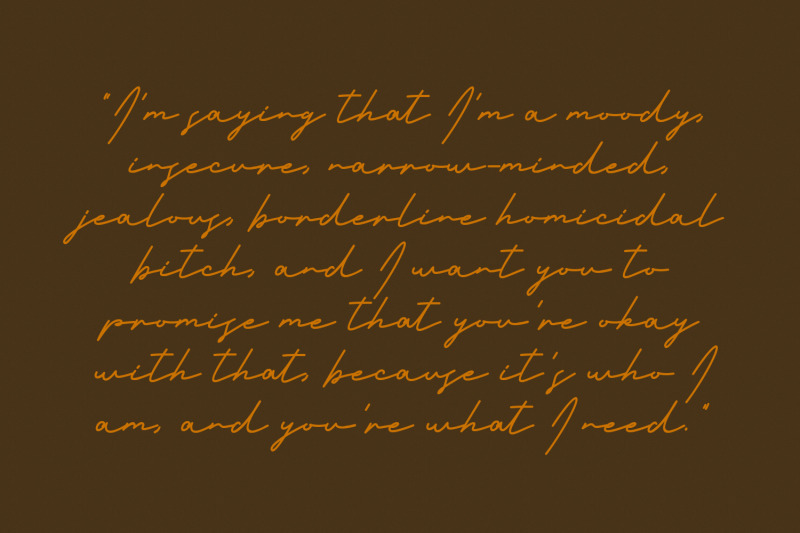 "I'm saying that I'm a moody,
insecure, narrow-minded,
jealous, borderline homicidal
bitch, and I want you to
promise me that you're okay
with that, because it's who I
am, and you're what I need."